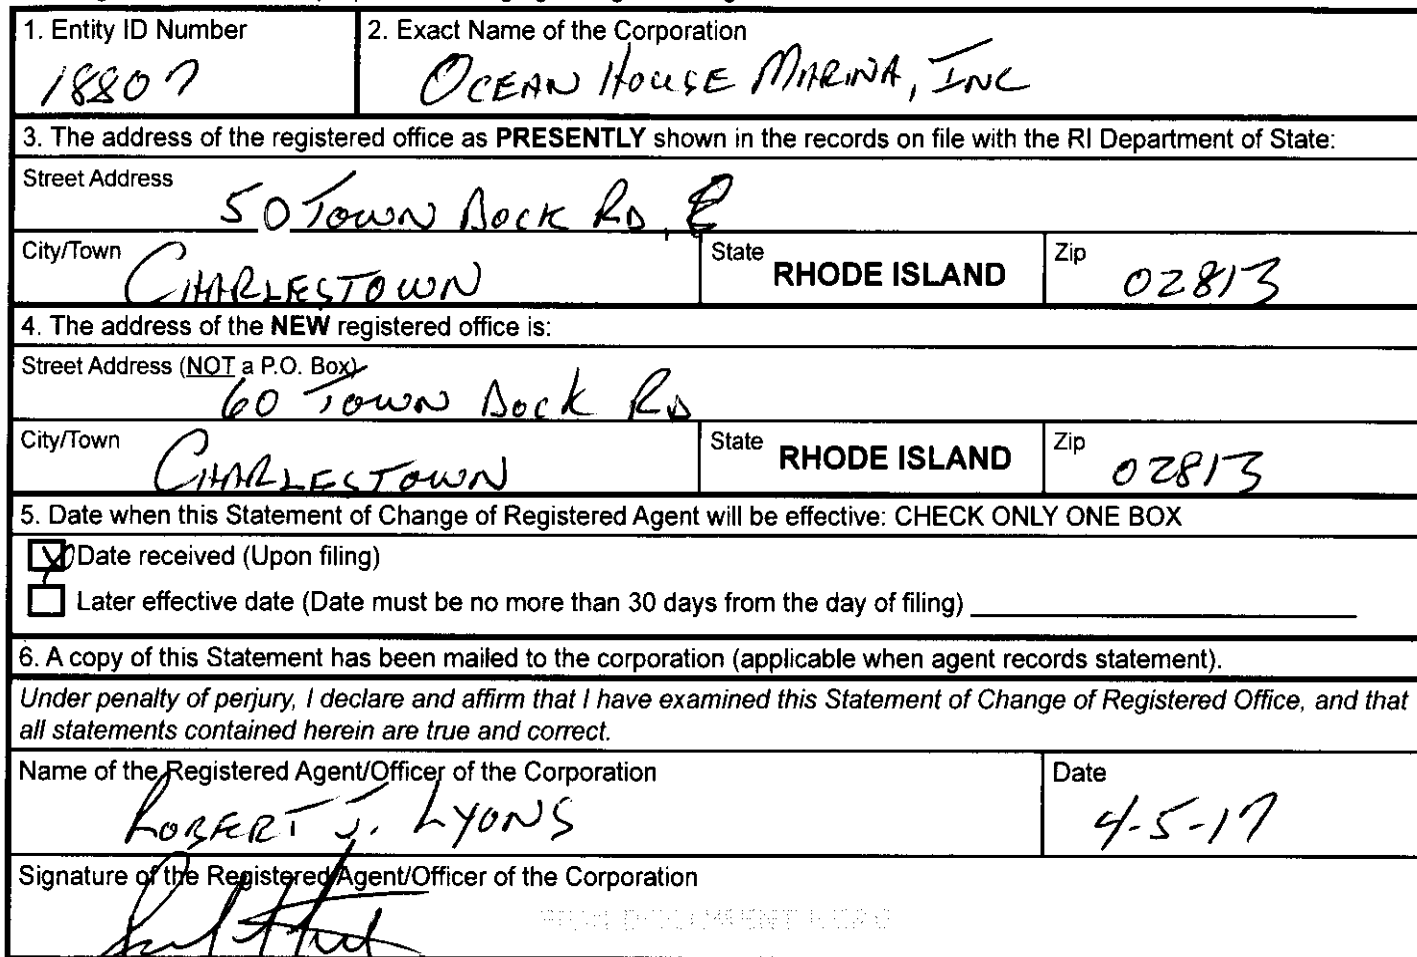 1. Entity ID Number
18807
2. Exact Name of the Corporation
OCEAN HOUSE MARINA, INC
3. The address of the registered office as PRESENTLY shown in the records on file with the RI Department of State:
Street Address
50 TOWN DOCK RD,
City/Town
CHARLESTOWN
State
RHODE ISLAND
Zip
02813
4. The address of the NEW registered office is:
Street Address (NOT a P.O. Box)
60 TOWN Dock RD
City/Town
CHARLESTOWN
State
RHODE ISLAND
Zip
02813
5. Date when this Statement of Change of Registered Agent will be effective: CHECK ONLY ONE BOX
Date received (Upon filing)
Later effective date (Date must be no more than 30 days from the day of filing)
6. A copy of this Statement has been mailed to the corporation (applicable when agent records statement).
Under penalty of perjury, I declare and affirm that I have examined this Statement of Change of Registered Office, and that
all statements contained herein are true and correct.
Name of the Registered Agent/Officer of the Corporation
ROBERT J. LYONS
Date
4-5-17
Signature of the Registered Agent/Officer of the Corporation